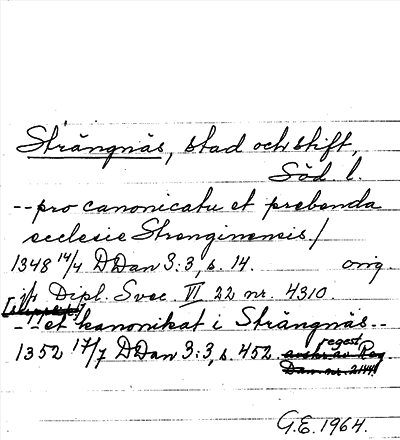 Strängnäs, stad och stift,
Söd l.
-- pro canonicatu et prebenda
ecclesie Strenginensis/
1348 14/4 DDan 3:3, s. 14. orig.
jfr Dipl. Svec. VI 22 nr. 4310.
-- et kanonikat i Strängnäs --
regest
1352 17/7 DDan 3:3, s. 452. avskr. av Reg
Dan. nr. 2144
G.E. 1964.